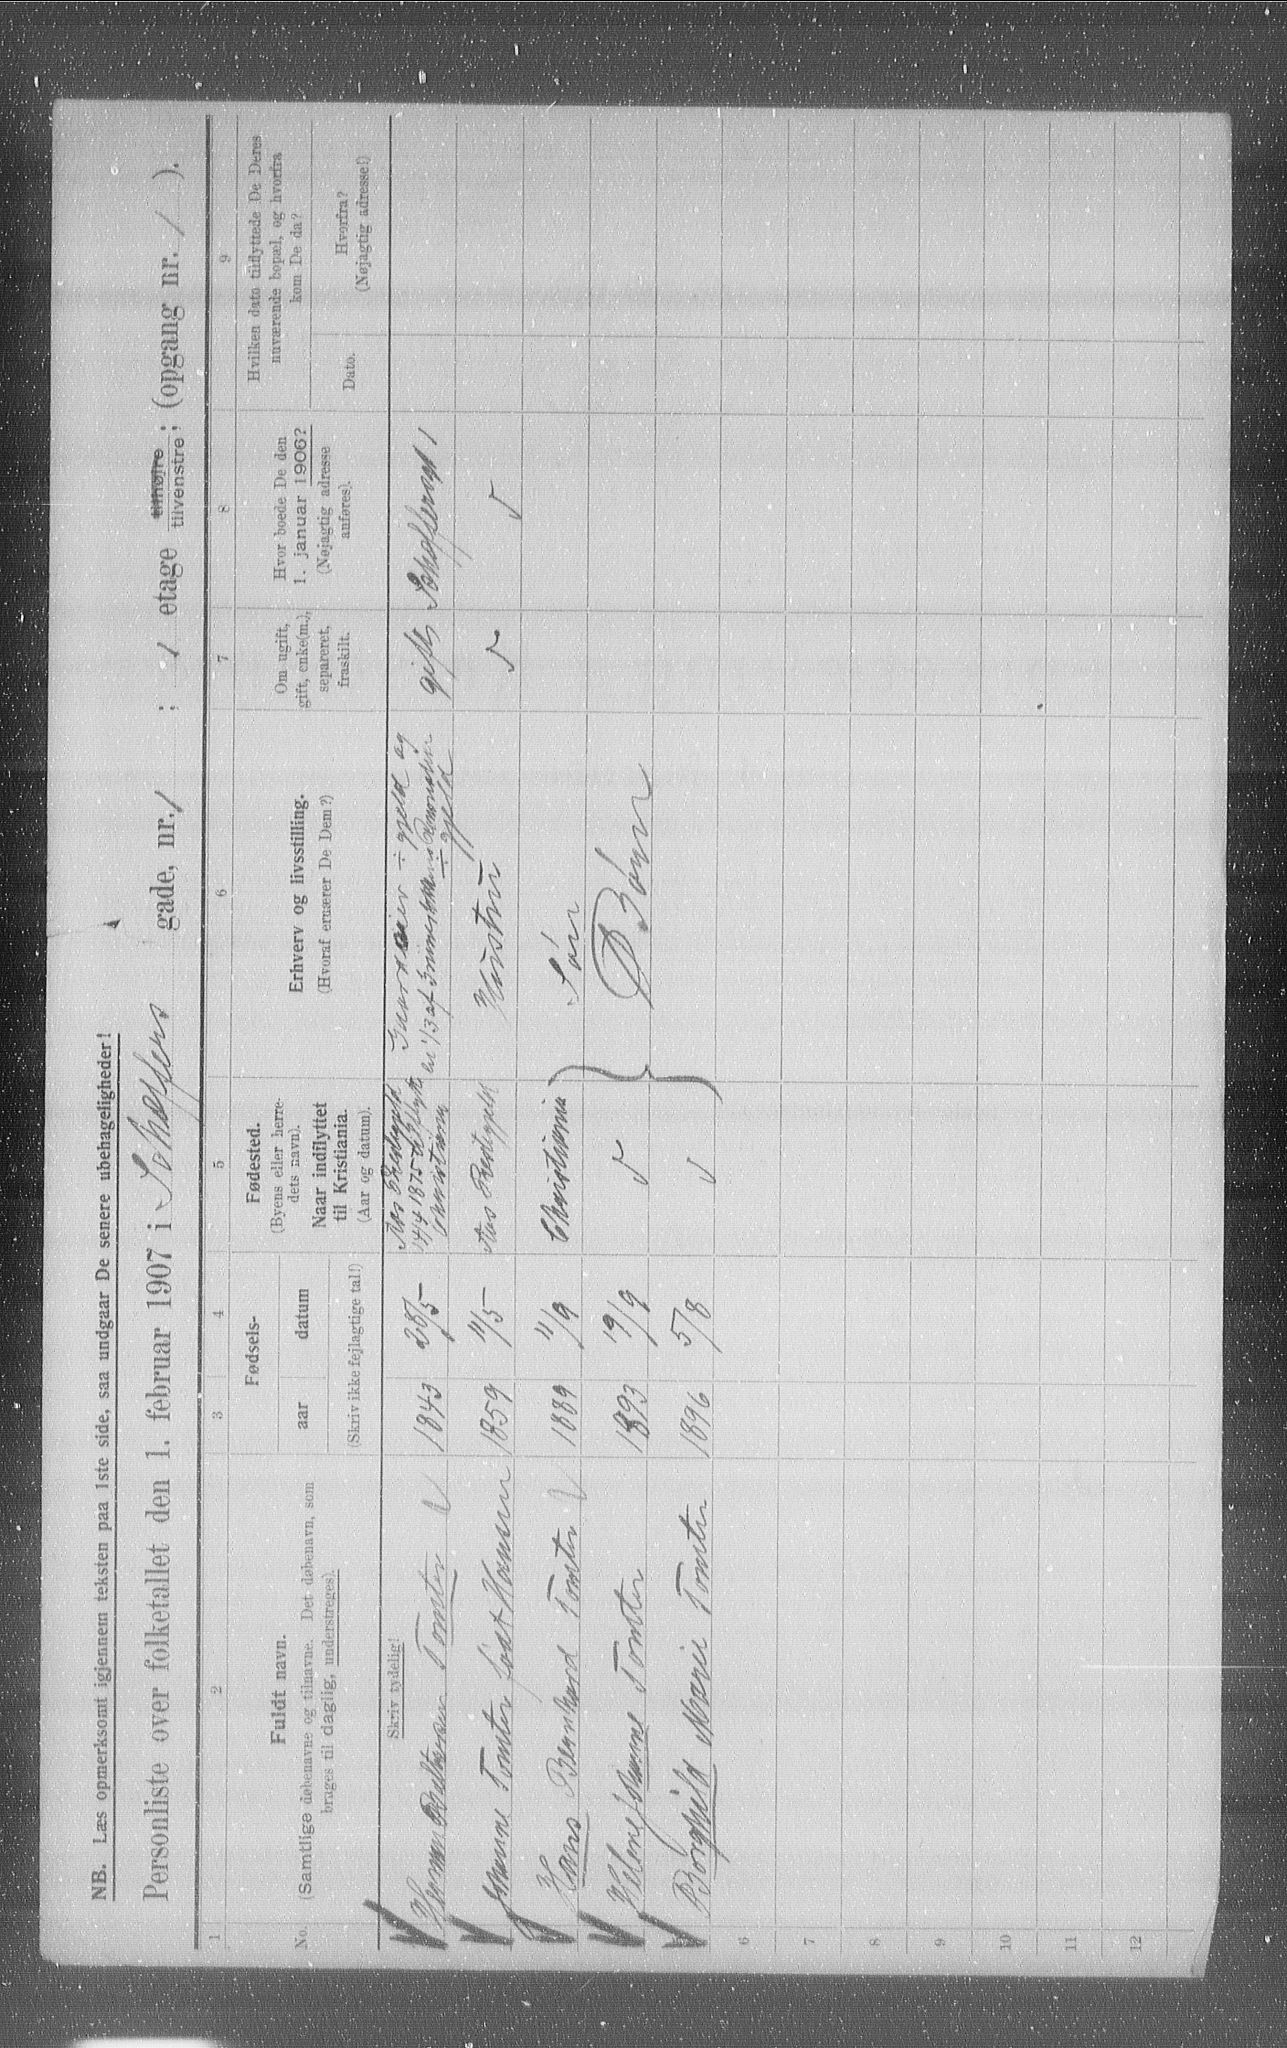 NB. Læs opmerksomt igjennem teksten paa 1ste side, saa undgaar De senere ubehageligheder!
Personliste over folketallet den 1. februar 1907 i Schæffers gade, nr. 1 ; 1 etage tilhøjre tilvenstre; (opgang nr. / ).
1 2 3 4 5 6 7 8 9
No.
Fuldt navn.
(Samtlige døbenavne og tilnavne. Det døbenavn, som
bruges til daglig, understreges).
Fødsels-
aar datum
(Skriv ikke fejlagtige tal!)
Fødested.
(Byens eller herre-
dets navn).
Naar indflyttet
til Kristiania.
(Aar og datum).
Erhverv og livsstilling.
(Hvoraf ernærer De Dem?)
Om ugift,
gift, enke(m.),
separeret,
fraskilt.
Hvor boede De den
1. januar 1906?
(Nøjagtig adresse
anføres).
Hvilken dato tilflyttede De Deres
nuværende bopæl, og hvorfra
kom De da?
Dato.
Hvorfra?
(Nøjagtig adresse!)
Skriv tydelig!
Tomter 1843 28/5 Aas 14/4 1875 Gaardeier ÷ gjeld og en 1/3 af ÷ gjeld gift 1
Johanne Tomter født Hansen 1859 11/5 Aas Hustru √ √
Hans Bernhard Tomter 1889 11/9 Christiania
Helene Johanne Tomter 1893 19/9 √ Børn
Borghild Marie Tomter 1896 5/8 √
6
7
8
9
10
11
12